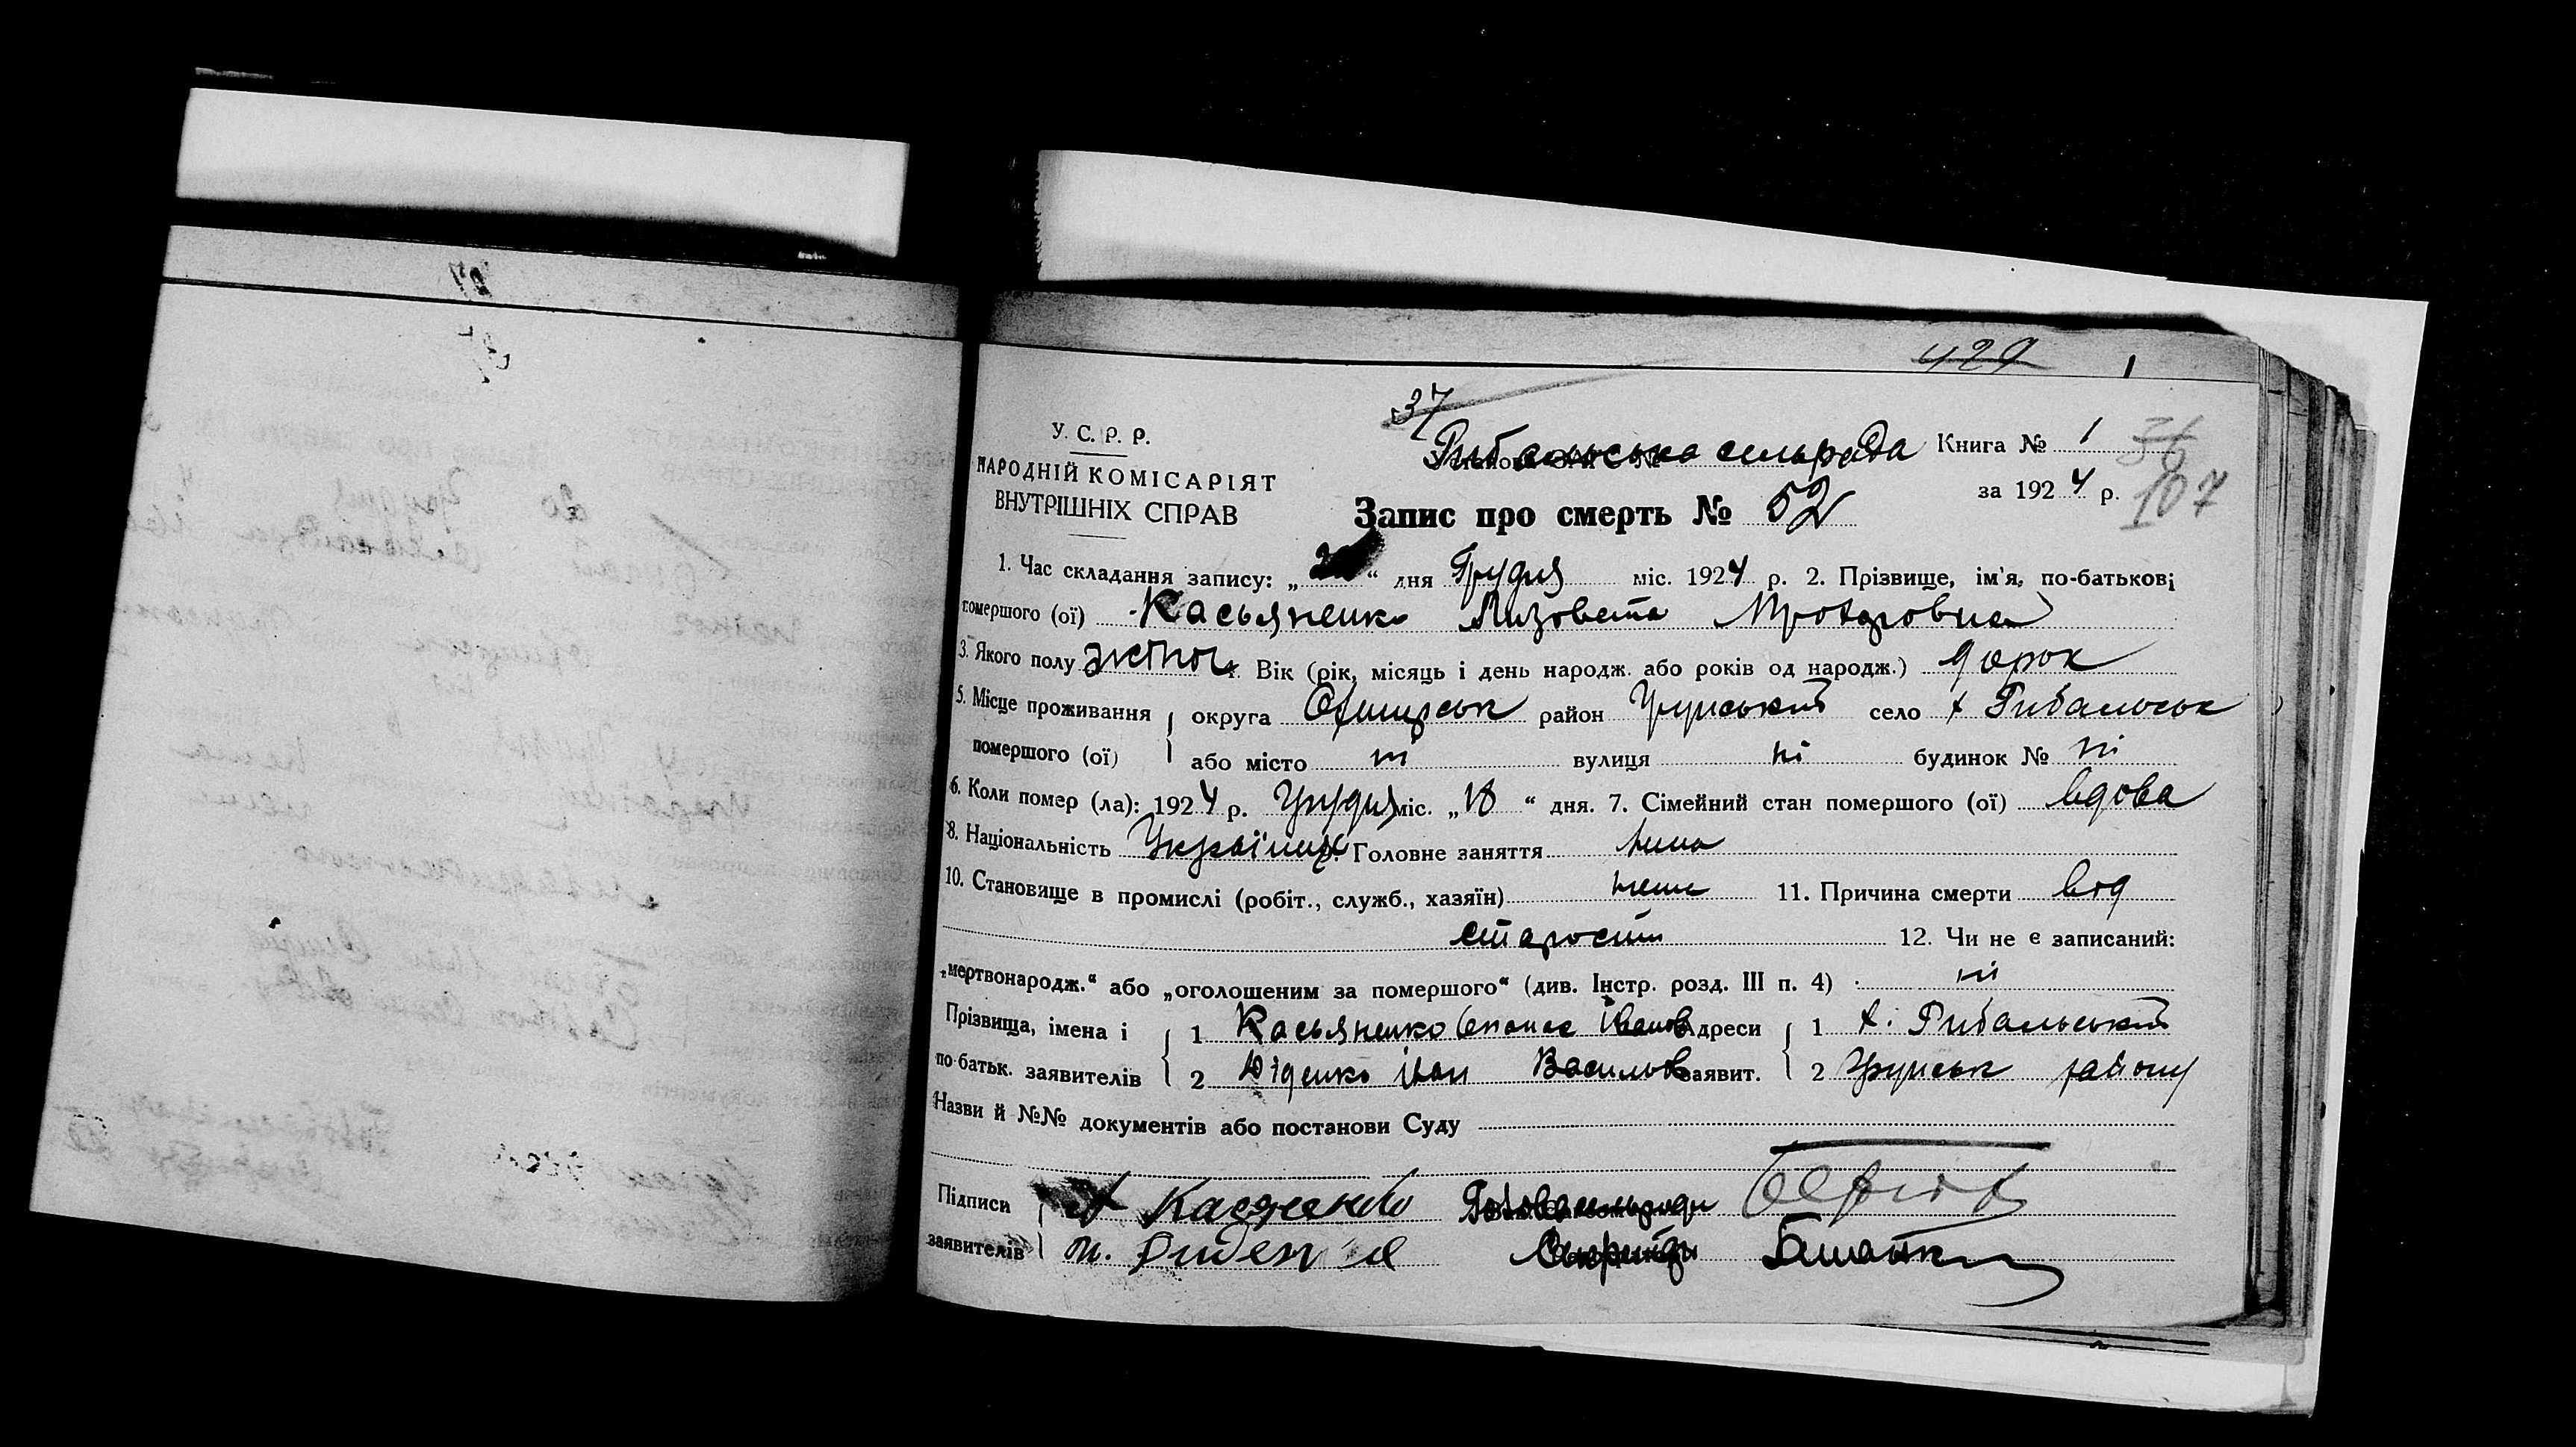 429 1
37
У. С. Р. Р.
НАРОДНІЙ КОМІСАРІЯТ
ВНУТРІШНІХ СПРАВ
Рибальська сельрада Книга № 1
за 1924 р. 107
Запис про смерть № 52
1. Час складання запису: „ “ дня Грудня міс. 1924 р. 2. Прізвище, ім'я, по-батькові
помершого (ої) Касьяненко Лизовета
3. Якого полу жіноч 4. Вік (рік, місяць і день народж. або років од народж.)
5. Місце проживання округа Охтирськ район Грунський село х Рибальськ
помершого (ої) або місто ні вулиця ні будинок № ні
6. Коли помер (ла): 1924 р. Грудня міс. „18“ дня. 7. Сімейний стан помершого (ої) вдова
8. Національність Українц 9. Головне заняття нема
10. Становище в промислі (робіт., служб., хазяїн) нема 11. Причина смерти від
старости 12. Чи не є записаний:
„мертвонародж.“ або „оголошеним за помершого“ (див. Інстр. розд. III п. 4) ні
Прізвища, імена і 1 Касьяненко Іванов Адреси 1 х. Рибальський
по-батьк. заявителів 2 Діденко Іван Васильов заявит. 2 Грунськ району
Назви й №№ документів або постанови Суду
Підписи Голова сельради
заявителів Секретар